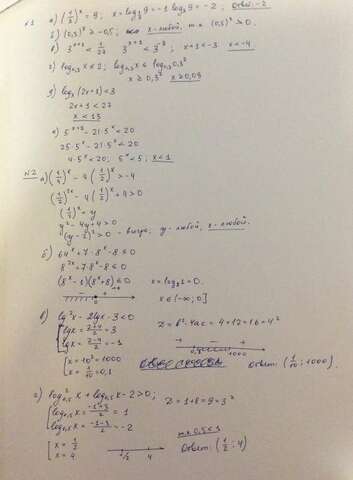 №1 а) (1/3)^x = 9; x = log_{1/3} 9 = -1 log_3 9 = -2; Ответ: -2
б) (0,5)^x ≥ -0,5; x-любой, т.к (0,5)^x > 0.
в) 3^{x+1} < 1/27 3^{x+1} < 3^{-3}; x+1 < -3; x < -4.
г) log_{0,3} x ≤ 2; log_{0,3} x ≤ log_{0,3} 0,3^2
x ≥ 0,3^2; x ≥ 0,09
д) log_3 (2x+1) < 3
2x+1 < 27
x < 13
е) 5^{x+2} - 21·5^x < 20
25·5^x - 21·5^x < 20
4·5^x < 20; 5^x < 5; x < 1
№2 а) (1/4)^x - 4(1/2)^x > -4
(1/2)^{2x} - 4(1/2)^x + 4 > 0
(1/2)^x = y
y^2 - 4y + 4 > 0
(y-2)^2 > 0 - y-любой, x-любой.
б) 64^x + 7·8^x - 8 ≤ 0
8^{2x} + 7·8^x - 8 ≤ 0
(8^x - 1)(8^x + 8) ≤ 0 x = log_8 1 = 0.
- + x ∈ (-∞; 0]
в) lg^2 x - 2lgx - 3 < 0 D = b^2 - 4ac = 4+12 = 16 = 4^2
lgx = (2+4)/2 = 3 + - +
lgx = (2-4)/2 = -1 0,1 1000
x = 10^3 = 1000 Ответ: (1/10; 1000).
x = 1/10 = 0,1
г) log^2_{0,5} x + log_{0,5} x - 2 > 0; D = 1+8 = 9 = 3^2
log_{0,5} x = (-1+3)/2 = 1
log_{0,5} x = (-1-3)/2 = -2
x = 1/2 т.к 0,5 < 1
x = 4 1/2 4 Ответ: (1/2; 4)